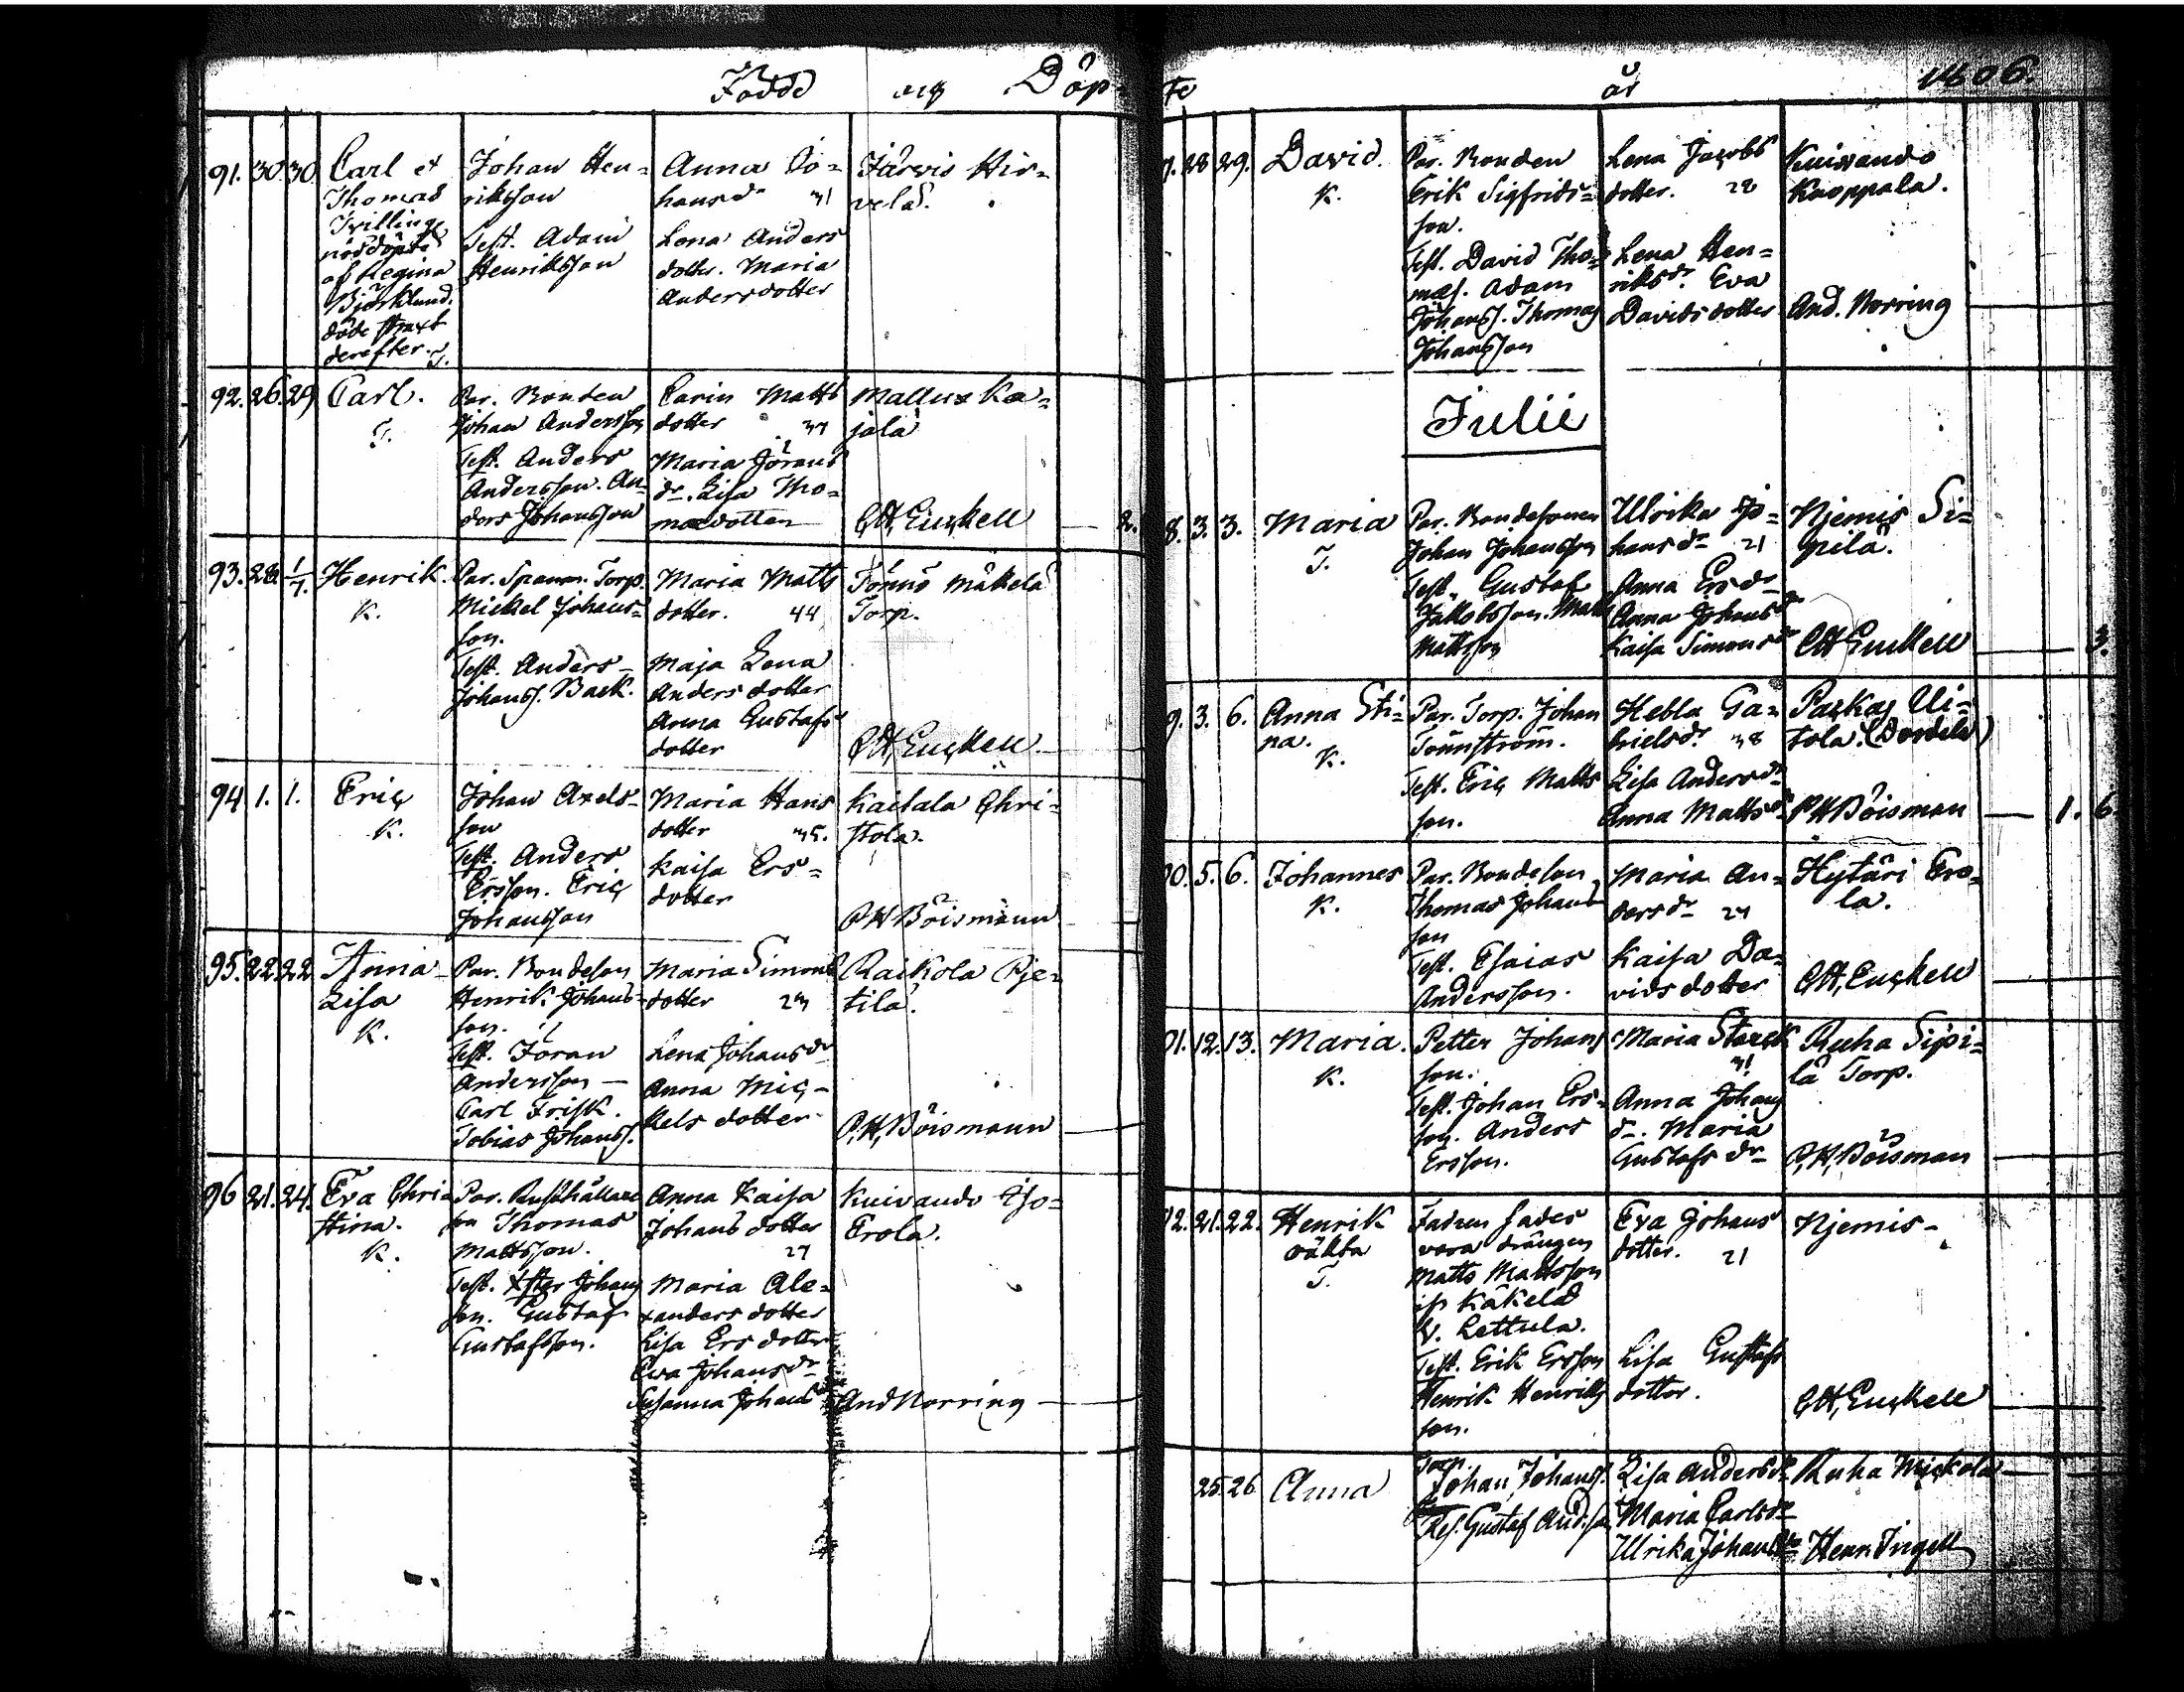 Födde och Döp-
91. 30. 30. Carl et
Thomas
Tvillingr
nöddöpte
af Regina
Björklund.
döde straxt
derefter. T.
Johan Hen-
riksson
Test. Adam
Henriksson
Anna Jo-
hansdr 31
Lena Anders
dotter. Maria
Andersdotter
Järvis Hir-
velä.
92. 26. 29. Carl.
T.
Par. Bonden
Johan Andersson
Test. Anders
Andersson. An-
ders Johansson
Carin Matts
dotter 34
Maria Jörans
dr. Lisa Tho-
mædotter
Mallus Ka-
jala
CH, Euckell 2.
93. 28. 1/7. Henrik.
K.
Par. Spanm. Torp.
Mickel Johans-
son.
Test. Anders
Johanss. Back.
Maria Matts
dotter. 44
Maja Lena
Anders dotter
Anna Gustafs
dotter
Tönnö Mäkelä
Torp.
CH, Euckell
94 1. 1. Eric
K.
Johan Axels-
son
Test. Anders
Ersson. Eric
Johansson
Maria Hans
dotter 35.
Kaisa Ers-
dotter
Kaitala Chri-
stola.
PH Böismann
95. 22. 22. Anna
Lisa
K.
Par. Bondeson
Henrik Johans-
son.
Test. Jöran
Andersson
Carl Frisk.
Tobias Johanss.
Maria Simons
dotter 23
Lena Johansdr
Anna Mic-
kels dotter
Raikola Pje-
tilä.
P,H, Böismann
96 21. 24. Eva Chri-
stina.
K.
Par. Rusthållare
son Thomas
Mattsson.
Test. Johans
son. Gustaf
Gustafsson.
Anna Kaisa
Johans dotter
27
Maria Ale-
xanders dotter
Lisa Ers dotter
Eva Johansdr
Susanna Johansdr
Kuivando Iso-
Erola.
And Norring
te år 1806.
7. 28 29. David.
K.
Par. Bonden
Erik Sigfrids-
son.
Test. David Tho-
mæs. Adam
Johanss. Thomas
Johansson
Lena Jacobs
dotter. 28
Lena Hen-
riksdr. Eva
Davidsdotter
Kuivando
Kaappala.
And. Norring
Julii
8. 3. 3. Maria
T.
Par. Bondesonen
Johan Johansson
Test. Gustaf
Jakobsson. Matts
Mattsson
Ulrika Jo-
hansdr 21
Anna Ersdr
Anna Johansdr
Kaisa Simonsdr
Njemis Si-
pilä.
CH Euckell 3.
9. 3. 6. Anna Sti-
na.
K.
Par. Torp. Johan
Tönnström.
Test. Eric Matts
son.
Hebla Ga-
brielsdr 38
Lisa Andersdr
Anna Mattsdr
Paskas Ui-
tola.
PH Böisman 1. 6.
00. 5. 6. Johannes
K.
Par. Bondeson
Thomas Johans
son
Test. Esaias
Andersson.
Maria An-
dersdr 24
Kaisa Da-
vids dotter
Hytäri Ero-
la.
CH, Euckell
01. 12. 13. Maria.
K.
Petter Johans
son.
Test. Johan Ers-
son. Anders
Ersson.
Maria Starck
31
Anna Johans
dr. Maria
Gustafs dr
Ruha Sipi-
lä Torp.
P,H, Böisman
02. 21. 22. Henrik
oäkta
T.
Fadren sades
vara drängen
Matts Mattsson
Lettula.
Test. Erik Ersson
Henrik Henriks
son.
Eva Johans
dotter. 21
Lisa Gustafs
dotter.
Njemis
CH, Euckell
25. 26 Anna
Torp.
Johan Johanss.
Gustaf Anders
Lisa Andersdr
Maria Carlsdr
Ulrika Johansdr
Ruha Nickola
Henr. Ingell